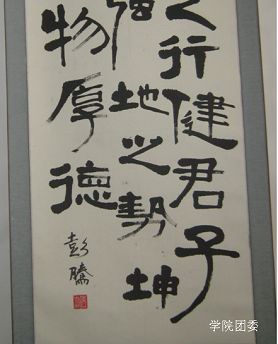 之行健君子
强地之勢坤
物厚德
彭騰
学院团委